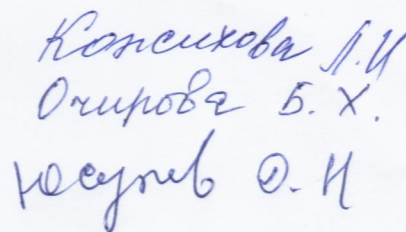 Кожихова Л.И
Очирова Б. Х.
Юсупов О. Н